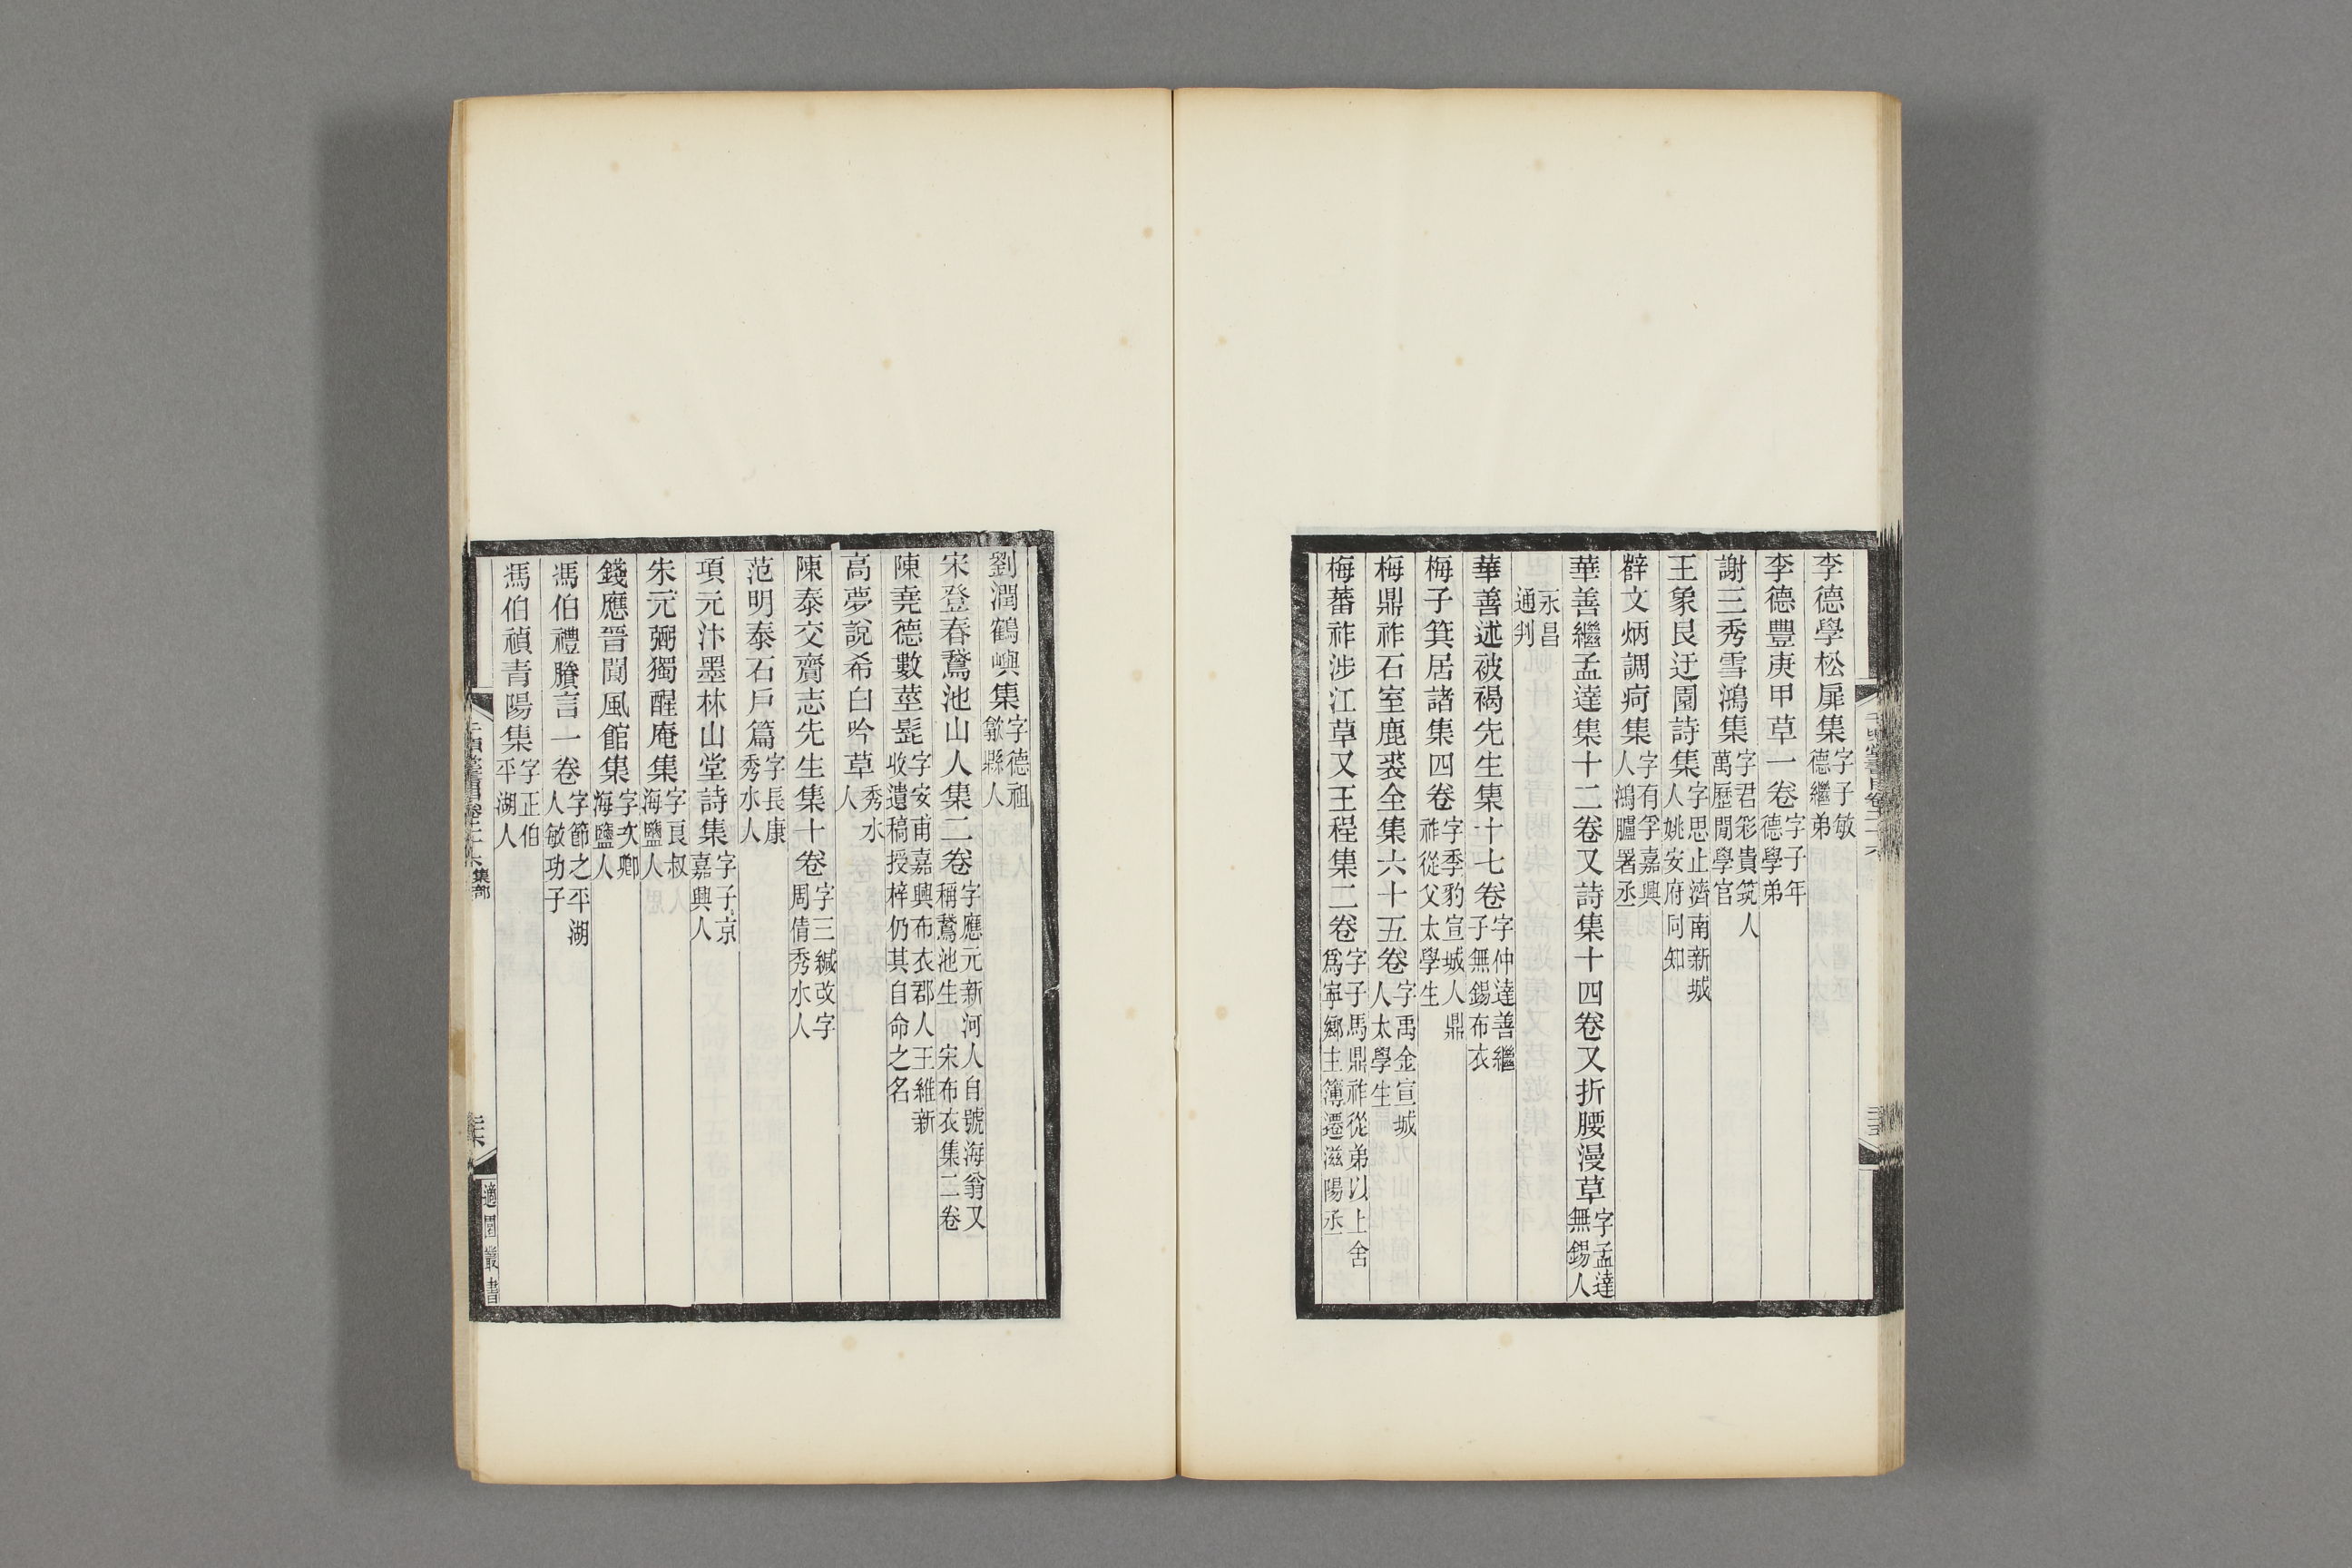 李德學松扉集字子敏德繼弟
李德豐庚甲草一卷字子年德學弟
謝三秀雪鴻集字君彩貴筑人萬歷閒學官
王象艮迂園詩集字思止濟南新城人姚安府同知
辥文炳調疴集字有孚嘉興人鴻臚署丞
華善繼孟達集十二卷又詩集十四卷又折腰漫草字孟達無錫人
永昌通判
華善述被褐先生集十七卷字仲達善繼子無錫布衣
梅子箕居諸集四卷字季豹宣城人鼎祚從父太學生
梅鼎祚石室鹿裘全集六十五卷字禹金宣城人太學生
梅蕃祚涉江草又王程集二卷字子馬鼎祚從弟以上舍爲寧鄉主簿遷滋陽丞
劉潤鶴嶼集字德祖歙縣人
宋登春鵞池山人集二卷字應元新河人自號海翁又稱鵞池生 宋布衣集二卷
陳堯德數莖髭字安甫嘉興布衣郡人王維新收遺稿授梓仍其自命之名
高夢說希白吟草秀水人
陳泰交齎志先生集十卷字三緘改字周倩秀水人
范明泰石戶篇字長康秀水人
項元汴墨林山堂詩集字子京嘉興人
朱元弼獨醒庵集字良叔海鹽人
錢應晉聞風館集字次卿海鹽人
馮伯禮賸言一卷字節之平湖人敏功子
馮伯禎青陽集字正伯平湖人
集部
適園叢書